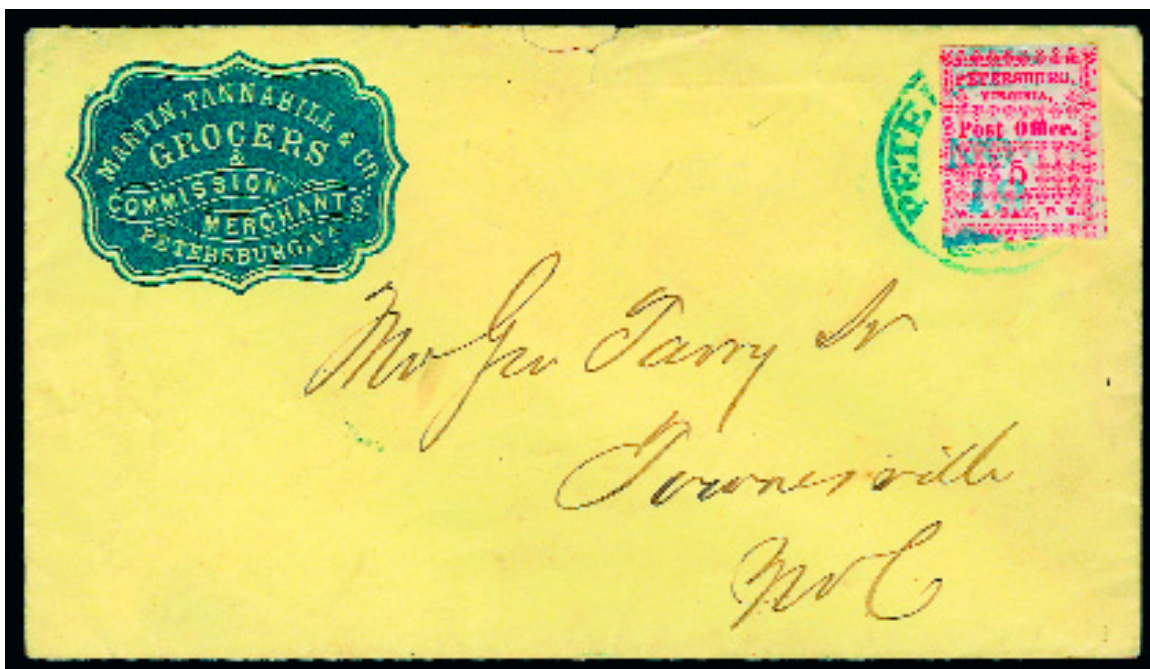 MARTIN, TANNAHILL & CO
GROCERS
&
COMMISSION
MERCHANTS
PETERSBURG, VA.
PETERSBURG,
VIRGINIA,
Post Office.
5
PETE
18
Mr Geo Tarry Sr
Townesville
No C